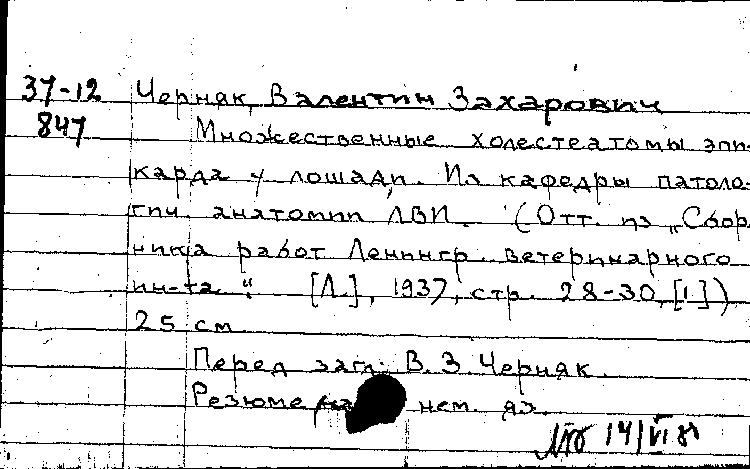 37-12 Черняк, Валентин Захарович
847 Множественные холестеатомы эпи-
карда у лошади. Из кафедры патоло-
гич. анатомии ЛВИ. (Отт. из „Сбор-
ника работ Ленингр. ветеринарного
ин-та." [Л.], 1937, стр. 28-30, [1])
25 см
Перед загл.: В. З. Черняк.
Резюме на нем. яз.
14/VI 81